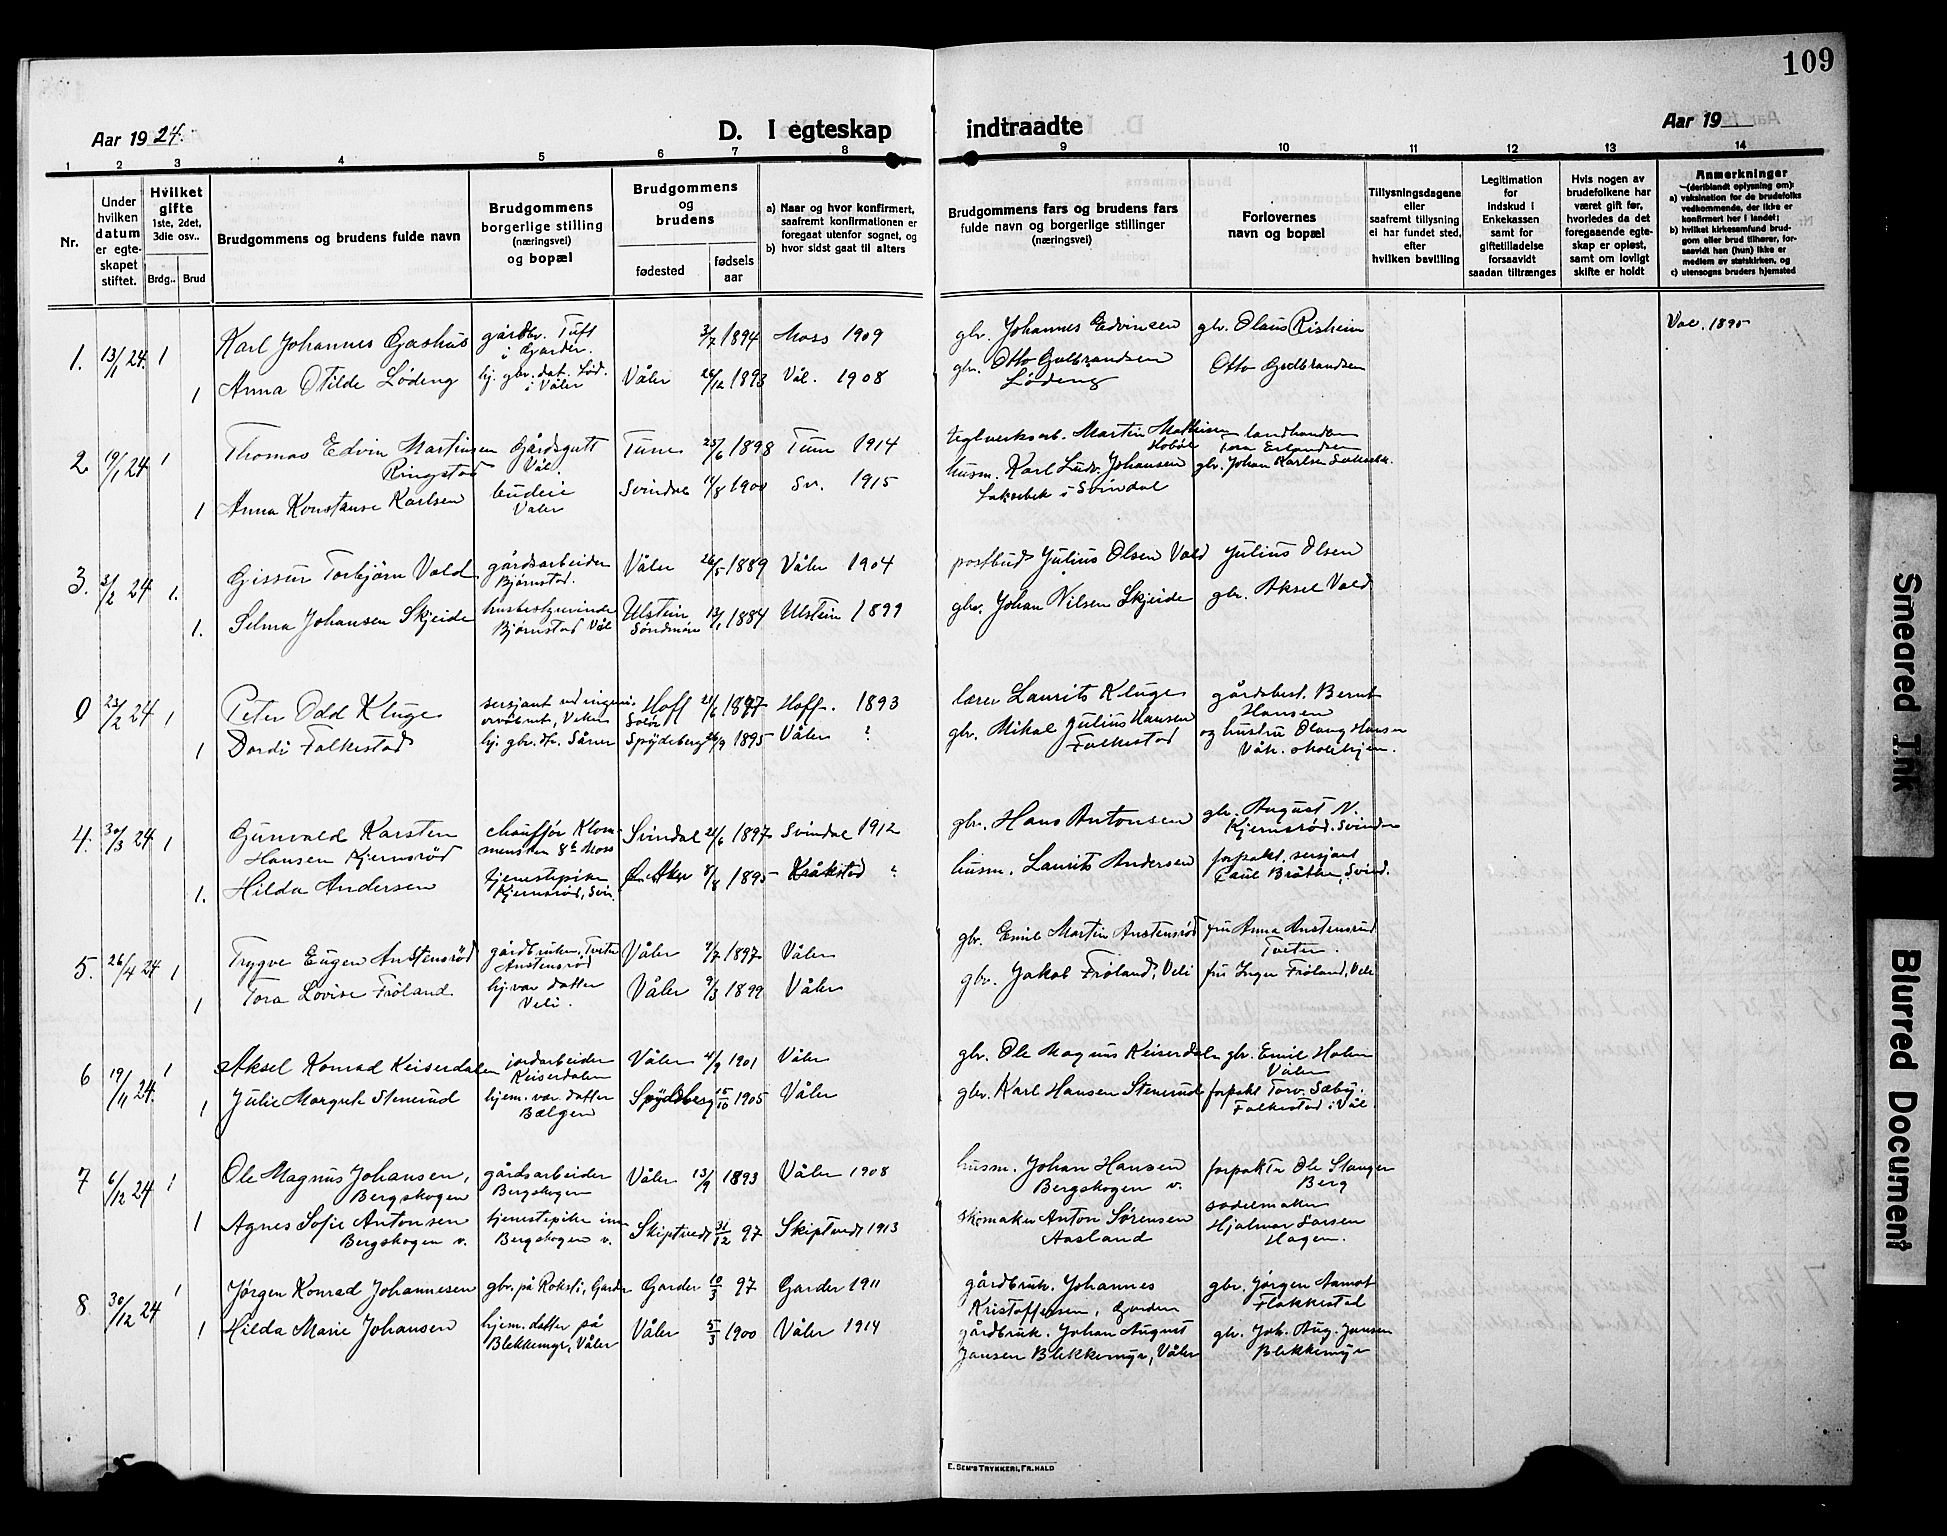 109
Aar 1924.
D. I egteskap indtraadte
Aar 19
1 2 3 4 5 6 7 8 9 10 11 12 13 14
Nr.
Under hvilken datum er egteskapet stiftet.
Hvilket gifte 1ste, 2det, 3die osv..
Brdg.. Brud
Brudgommens og brudens fulde navn
Brudgommens borgerlige stilling (næringsvei) og bopæl
Brudgommens og brudens
fødested
fødselsaar
a) Naar og hvor konfirmert, saafremt konfirmationen er foregaat utenfor sognet, og
b) hvor sidst gaat til alters
Brudgommens fars og brudens fars fulde navn og borgerlige stillinger (næringsvei)
Forlovernes navn og bopæl
Tillysningsdagene eller saafremt tillysning ei har fundet sted, efter hvilken bevilling
Legitimation for indskud i Enkekassen samt for giftetilladelse forsaavidt saadan tiltrænges
Hvis nogen av brudefolkene har været gift før, hvorledes da det foregaaende egteskap er opløst, samt om lovligt skifte er holdt
Anmerkninger (deriblandt oplysning om):
a) vaksination for de brudefolks vedkommende, der ikke er konfirmert her i landet;
b) hvilket kirkesamfund brudgom eller brud tilhører, forsaavidt han (hun) ikke er medlem av statskirken, og
c) utensogns bruders hjemsted
1. 13/1 24. 1 Karl Johannes Gashus gårdbr. Tuft i Garder. 3/7 1894 Moss 1909 gbr. Johannes Edvinsen gbr. Olaus Risheim Vac. 1895
1 Anna Otilde Lødeng hj. gbr. dat. Lød. i Våler Våler 26/12 1893 Vål. 1908 gbr. Otto Gulbrandsen Lødeng Otto Gulbrandsen
2 19/1 24 1 Thomas Edvin Martinsen Ringstad Gårdsgutt Vål. Tune 25/6 1898 Tune 1914 teglverksarb. Martin Mathisen Hobøl landhandler Tora Erlandsen
1 Anna Konstanse Karlsen budeie Våler Svindal 14/8 1900 Sv. 1915 husm. Karl Ludv. Johansen Laksebek i Svindal gbr. Johan Karlsen
3. 3/2 24 1. Gissur Torbjørn Vald gårdsarbeider Bjørnstad. Våler 26/5 1889 Våler 1904 postbud Julius Olsen Vald Julius Olsen
1. Selma Johansen Skjeide husbestyrerinde Bjørnstad Vål Ulstein Søndmøre 13/1 1884 Ulstein 1899 gbr. Johan Nilsen Skjeide gbr. Aksel Vald
0 23/2 24 1 Peter Odd Kluge sersjant ved ingeniørvåbnet, Hoff Solør 21/6 1877 Hoff. 1893 lærer Laurits Kluge gårdsbest. Bernt Hansen
1 Dordi Folkestad hj. gbr. dtr. Såner Spydeberg 26/9 1895 Våler ? gbr. Mikal Julius Hansen Folkestad og hustru Olaug Hansen Våk.
4. 30/3 24 1 Gunvald Karsten Hansen Kjernsrød chauffør Klommensten 8b Moss Svindal 21/6 1897 Svindal 1912 gbr. Hans Antonsen gbr. August N. Kjernsrød. Svindal
1. Hilda Andersen tjenestepike Kjernsrød, Svin. Ø. Aker 8/8 1895 Kråkstad ? husm. Laurits Andersen forpakt. sersjant Paul Bråthe, Svind.
5. 26/4 24 1 Trygve Eugen Anstensrød gårdbruker, Tveter Anstensrød Våler 9/7 1897 Våler gbr. Emil Martin Anstensrød fru Anna Anstensrud Tveter.
1 Tora Lovise Frøland hj. var. datter Veli. Våler 9/3 1899 Våler gbr. Jakob Frøland, Veli fru Inga Frøland, Veli
6 19/11 24. 1 Aksel Konrad Keiserdalen jordarbeider Keiserdalen Våler 4/9 1901 Våler gbr. Ole Magnus Keiserdalen gbr. Emil Holen Våler
1 Julie Margrete Stenerud hjem. var. datter Bølgen Spydeberg 15/10 1905 Våler gbr. Karl Hansen Stenerud forpakt Torv. Sæby. Folkestad i Vål.
7 6/12 24 1 Ole Magnus Johansen, Bergskogen gårdsarbeider Bergskogen Våler 13/9 1893 Våler 1908 husm. Johan Hansen Bergskogen v. forpakter Ole Stanger Berg
1 Agnes Sofie Antonsen Bergskogen v. tjenestepike inn Bergskogen v. Skiptvedt 31/12 97 Skiptvedt 1913 skomaker Anton Sørensen Aasland sadelmaker Hjalmar Larsen Hagen.
8 30/12 24 1 Jørgen Konrad Johannesen gbr. på Roksli, Garder Garder 10/3 97 Garder 1911 gårdbruk. Johannes Kristoffersen, Garder gbr. Jørgen Aamot Flakkestad
1 Hilda Marie Johansen hjem. datter på Blekkemyr, Våler Våler 5/3 1900 Våler 1914 gårdbruk. Johan August Jansen Blekkemyr, Våler gbr. Joh. Aug. Jansen Blekkemyr
E. SEM'S TRYKKERI, FR.HALD
Smeared Ink
Blurred Document